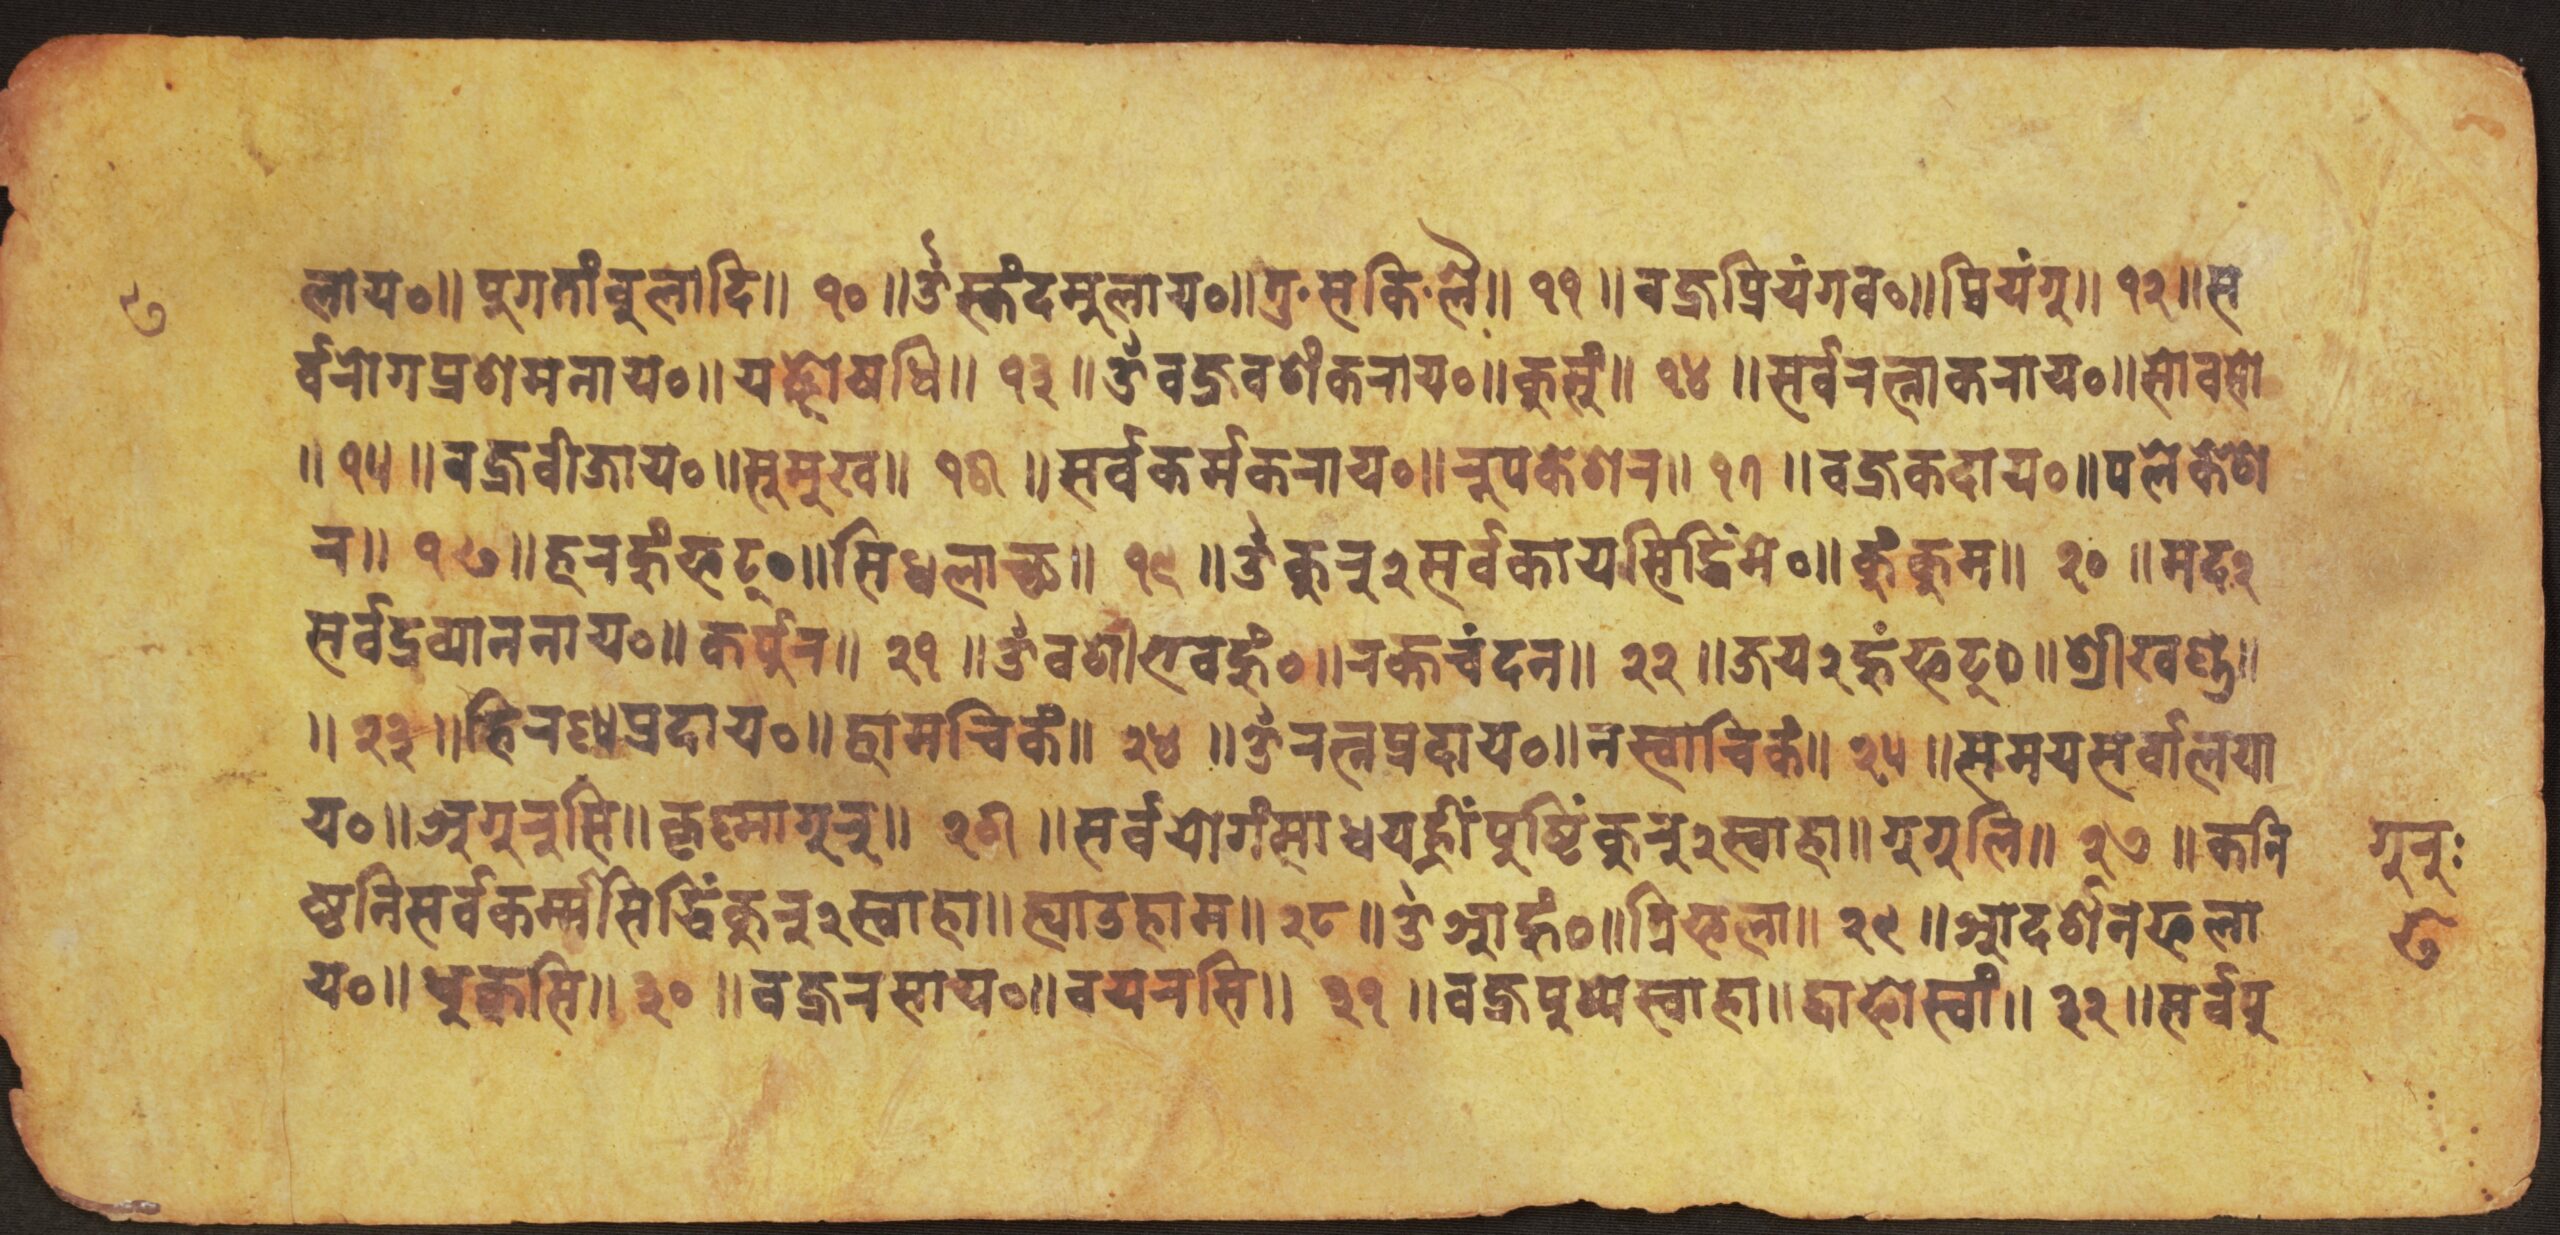 लाय०॥ पुगतांबुलादि॥ १० ॥ॐस्कंदमुलाय०॥तु·सकि·लै॥ ११ ॥ वज्रप्रियंगव०॥प्रियंगु॥ १२॥स
र्वरोगप्रशमनाय०॥ १३ ॥ॐवज्रवशंकराय०॥ १४ ॥सर्वरत्नाकराय०॥सोवसो
॥ १५ ॥वज्रवीजाय०॥सुमुख॥ १६ ॥सर्वकर्मकराय०॥रुपकेशर॥ १७ ॥वज्रकदाय०॥पलेकेशे
र॥ १८ ॥हूरहुंफट्०॥सिधलाच्छ॥ १९ ॥ॐकुरु२सर्वकायसिद्धिंमे०॥कुंकुम॥ २० ॥मद२
सर्वद्रव्याननाय०॥कर्पुर॥ २१ ॥रक्तचंदन॥ २२ ॥जय२हुंफट्०॥श्रीखण्ड॥
॥ २३ ॥हिरण्यप्रदाय०॥ह्वामचिकं॥ २४ ॥ॐरत्नप्रदाय०॥नस्वाचिकं॥ २५ ॥समयसर्वालया
य०॥अगुरुसि॥कृष्णागुरु॥ २६ ॥सर्वयोगंसाधयह्रींपुष्टिंकुरु२स्वाहा॥गुगुलि॥ २७ ॥कनि
ष्ठनिसर्वकर्म्मसिद्धिंकुरु२स्वाहा॥ह्याउहाम॥ २८ ॥ॐआहुं०॥त्रिफला॥ २९ ॥आदर्शनफला
य०॥धुकसि॥ ३० ॥वज्ररसाय०॥वयरसि॥ ३१ ॥वज्रपुष्पेस्वाहा॥द्वाफोस्वां॥ ३२ ॥सर्वपु
गुरुः
८